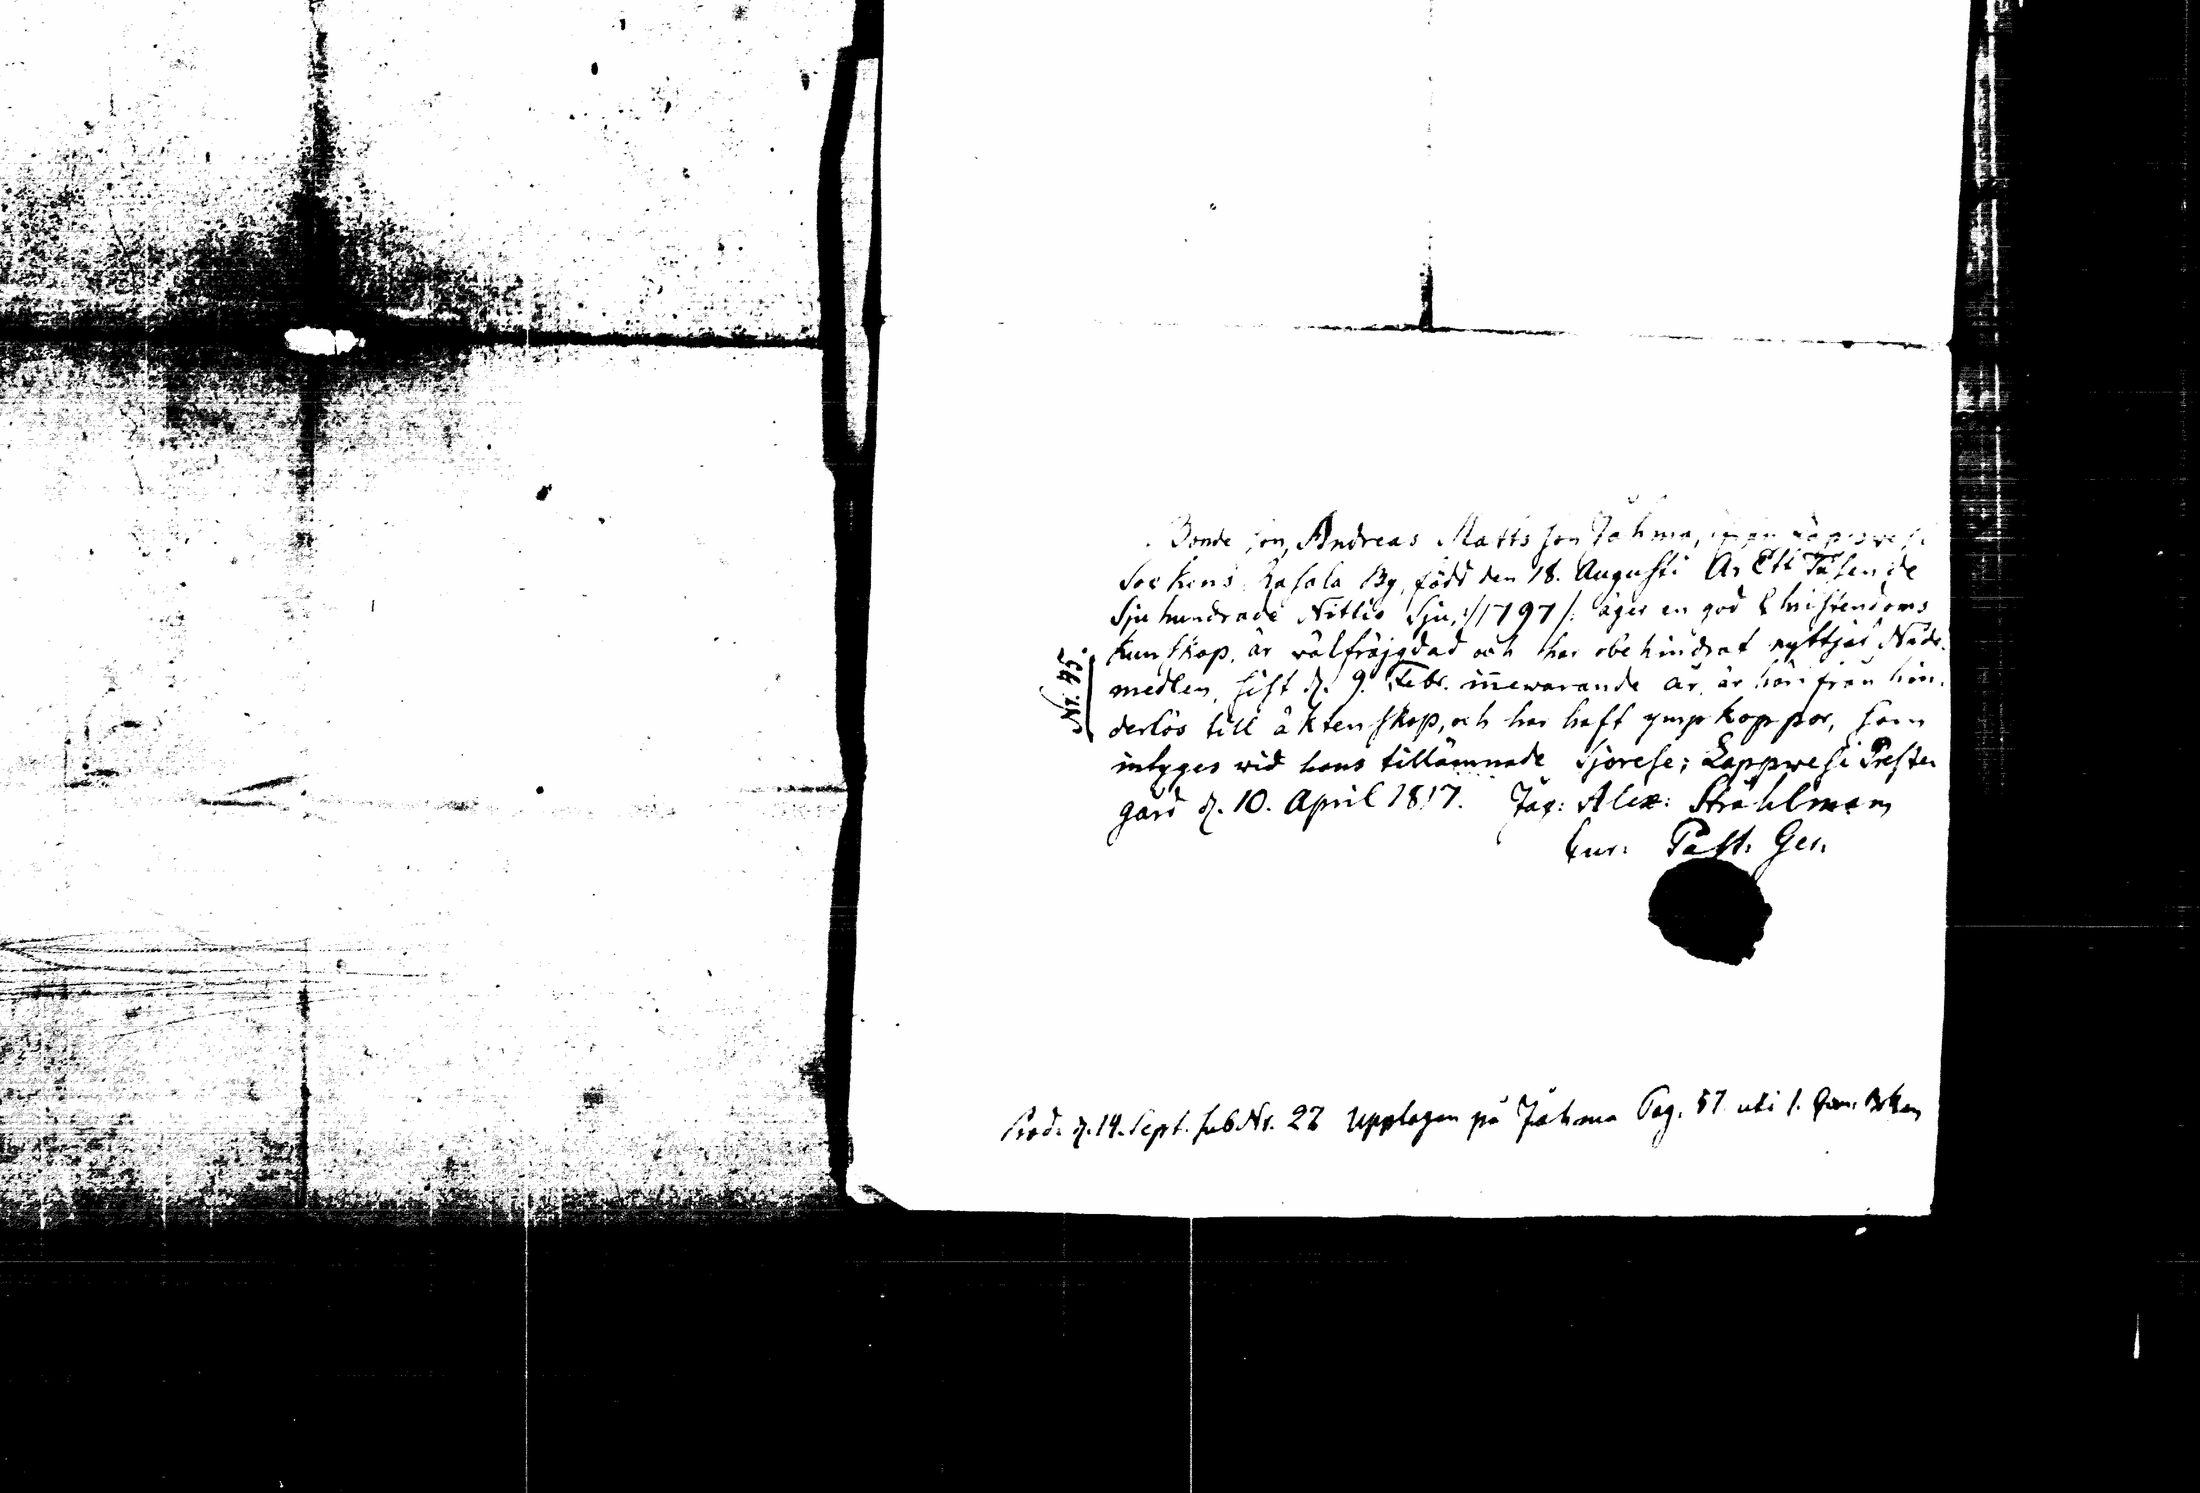 Bonde son, Andreas Matts son Jähma, ifrån Lappwesi
Sockens Hasala By, född den 18. Augusti År Ett Tusende
Sjuhundrade Nittio Sju, :/1797/: äger en god Christendoms
kunskap, är wälfräjgdad och har obehindrat nyttjat Nåde-
medlen, sist d. 9. Febr. innewarande år, är härifrån hin-
derlös till äktenskap, och har haft ympkoppor, som
intyges wid hans tillämnade Sjörese; Lappwesi Preste
gård d. 10. April 1817. Jag: Alex: Ståhlman
Cur: Past. Ger.
Nr. 45.
Prod. d. 14. Sept. sub Nr. 22 Upptagen på Jähma Pag. 57 uti 1. Com. Boken